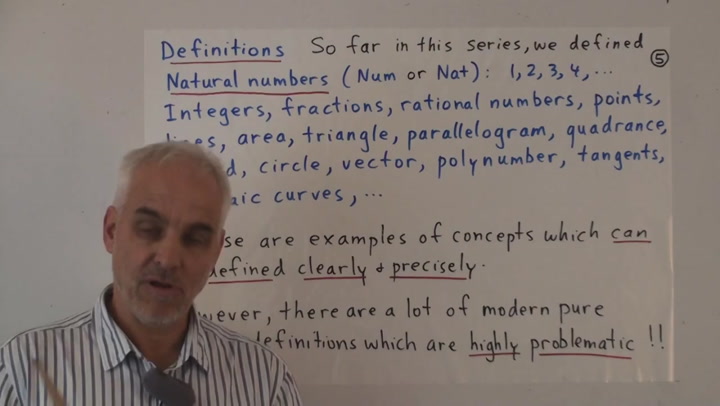 Definitions So far in this series, we defined
5
Natural numbers (Num or Nat): 1, 2, 3, 4, ...
Integers, fractions, rational numbers, points,
area, triangle, parallelogram, quadrance,
circle, vector, polynumber, tangents,
curves, ...
are examples of concepts which can
clearly & precisely.
there are a lot of modern pure
definitions which are highly problematic !!